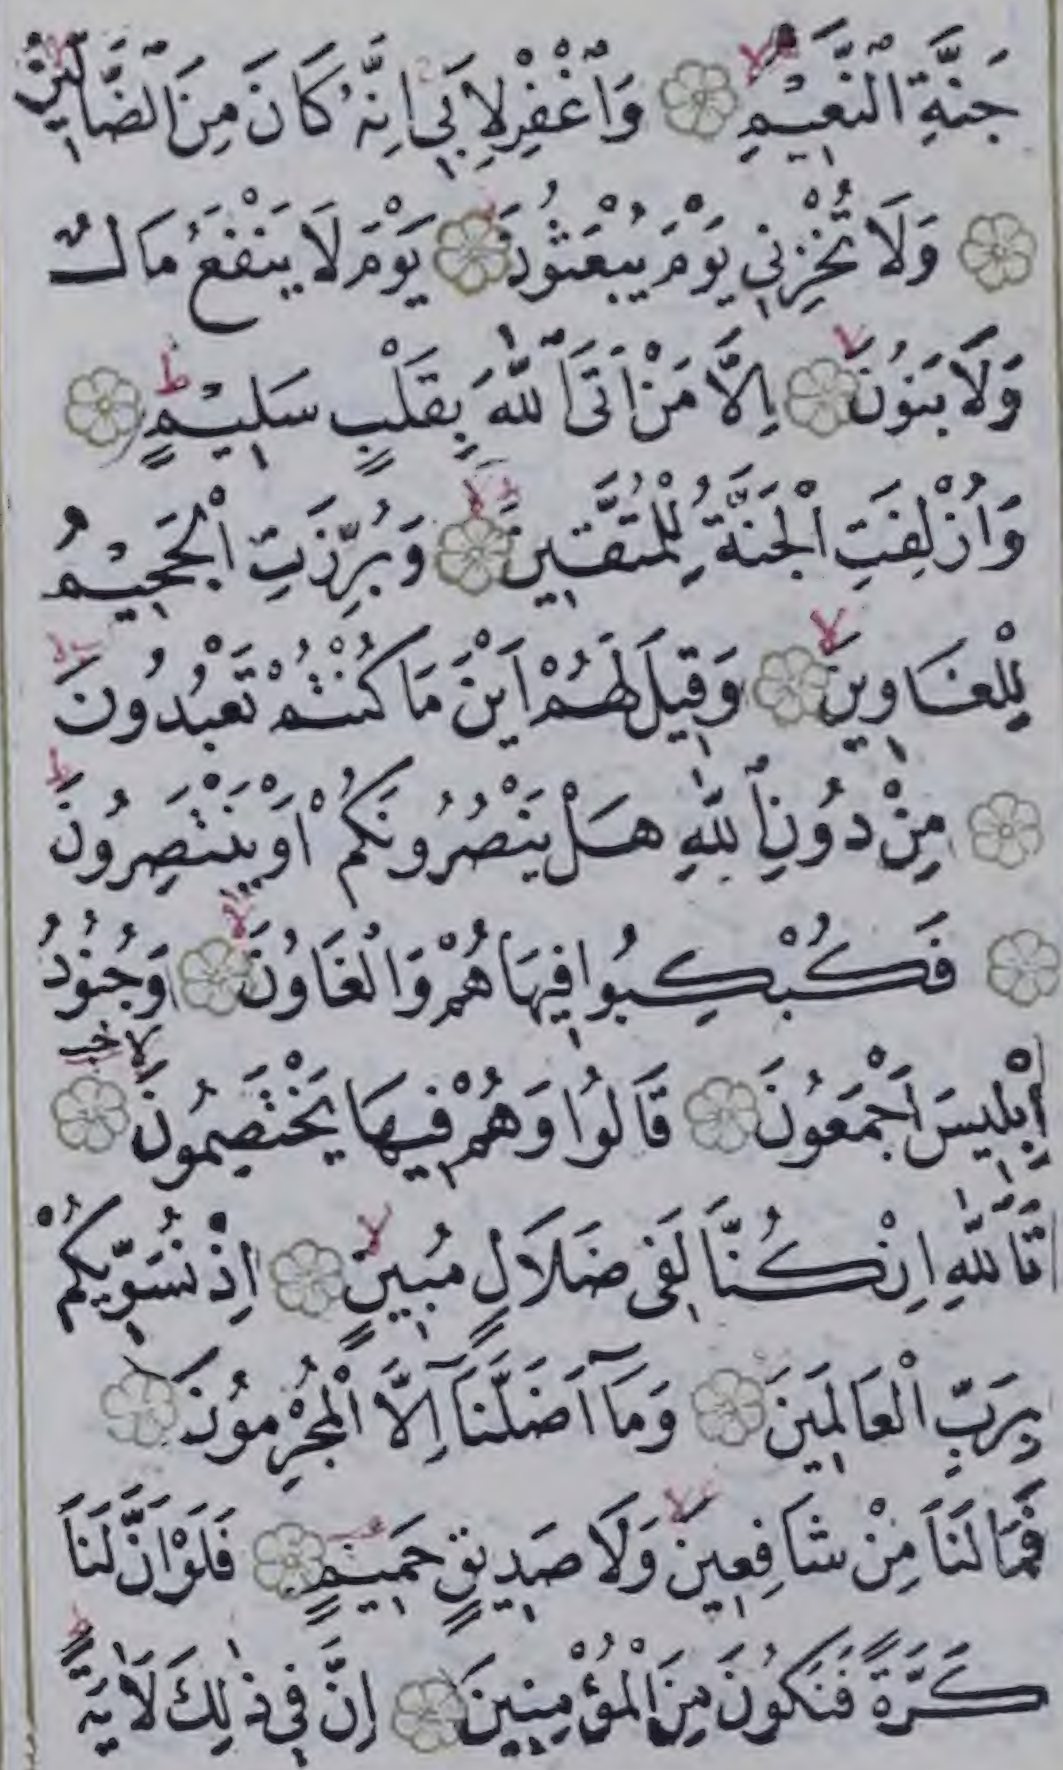 جَنَّةِ النَّعِيمِ ۞ وَاغْفِرْ لِأَبِي إِنَّهُ كَانَ مِنَ الضَّالِّينَ
۞ وَلَا تُخْزِنِي يَوْمَ يُبْعَثُونَ ۞ يَوْمَ لَا يَنْفَعُ مَالٌ
وَلَا بَنُونَ ۞ إِلَّا مَنْ أَتَى اللَّهَ بِقَلْبٍ سَلِيمٍ ۞
وَأُزْلِفَتِ الْجَنَّةُ لِلْمُتَّقِينَ ۞ وَبُرِّزَتِ الْجَحِيمُ
لِلْغَاوِينَ ۞ وَقِيلَ لَهُمْ أَيْنَ مَا كُنْتُمْ تَعْبُدُونَ
۞ مِنْ دُونِ اللَّهِ هَلْ يَنْصُرُونَكُمْ أَوْ يَنْتَصِرُونَ
۞ فَكُبْكِبُوا فِيهَا هُمْ وَالْغَاوُنَ ۞ وَجُنُودُ
إِبْلِيسَ أَجْمَعُونَ ۞ قَالُوا وَهُمْ فِيهَا يَخْتَصِمُونَ ۞
تَاللَّهِ إِنْ كُنَّا لَفِي ضَلَالٍ مُبِينٍ ۞ إِذْ نُسَوِّيكُمْ
بِرَبِّ الْعَالَمِينَ ۞ وَمَا أَضَلَّنَا إِلَّا الْمُجْرِمُونَ ۞
فَمَا لَنَا مِنْ شَافِعِينَ وَلَا صَدِيقٍ حَمِيمٍ ۞ فَلَوْ أَنَّ لَنَا
كَرَّةً فَنَكُونَ مِنَ الْمُؤْمِنِينَ ۞ إِنَّ فِي ذٰلِكَ لَآيَةً